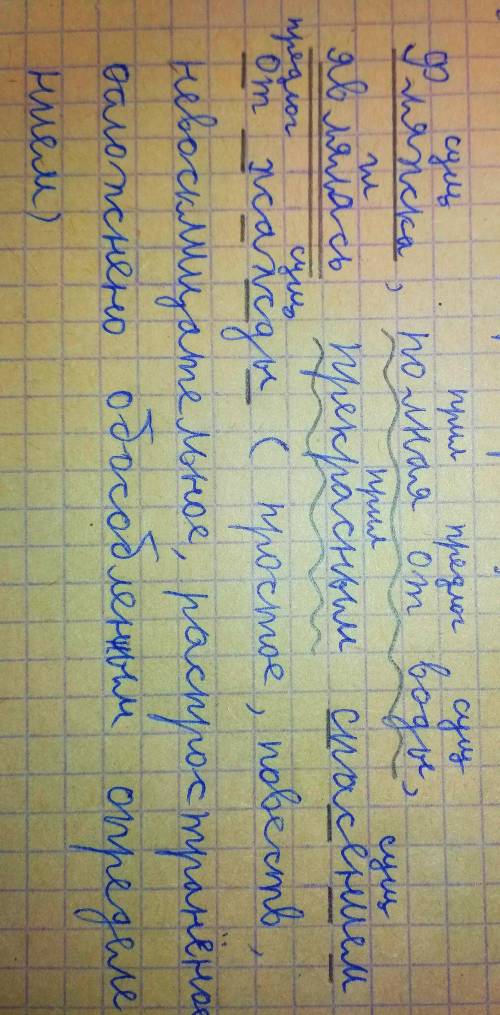 сущ прил предлог сущ
Фляжка, полная от воды,
гл прил сущ
являлась прекрасным спасением
предлог сущ
от жажды ( простое, повеств,
невосклицательное, распространённое
осложнено обособленным определе
нием)